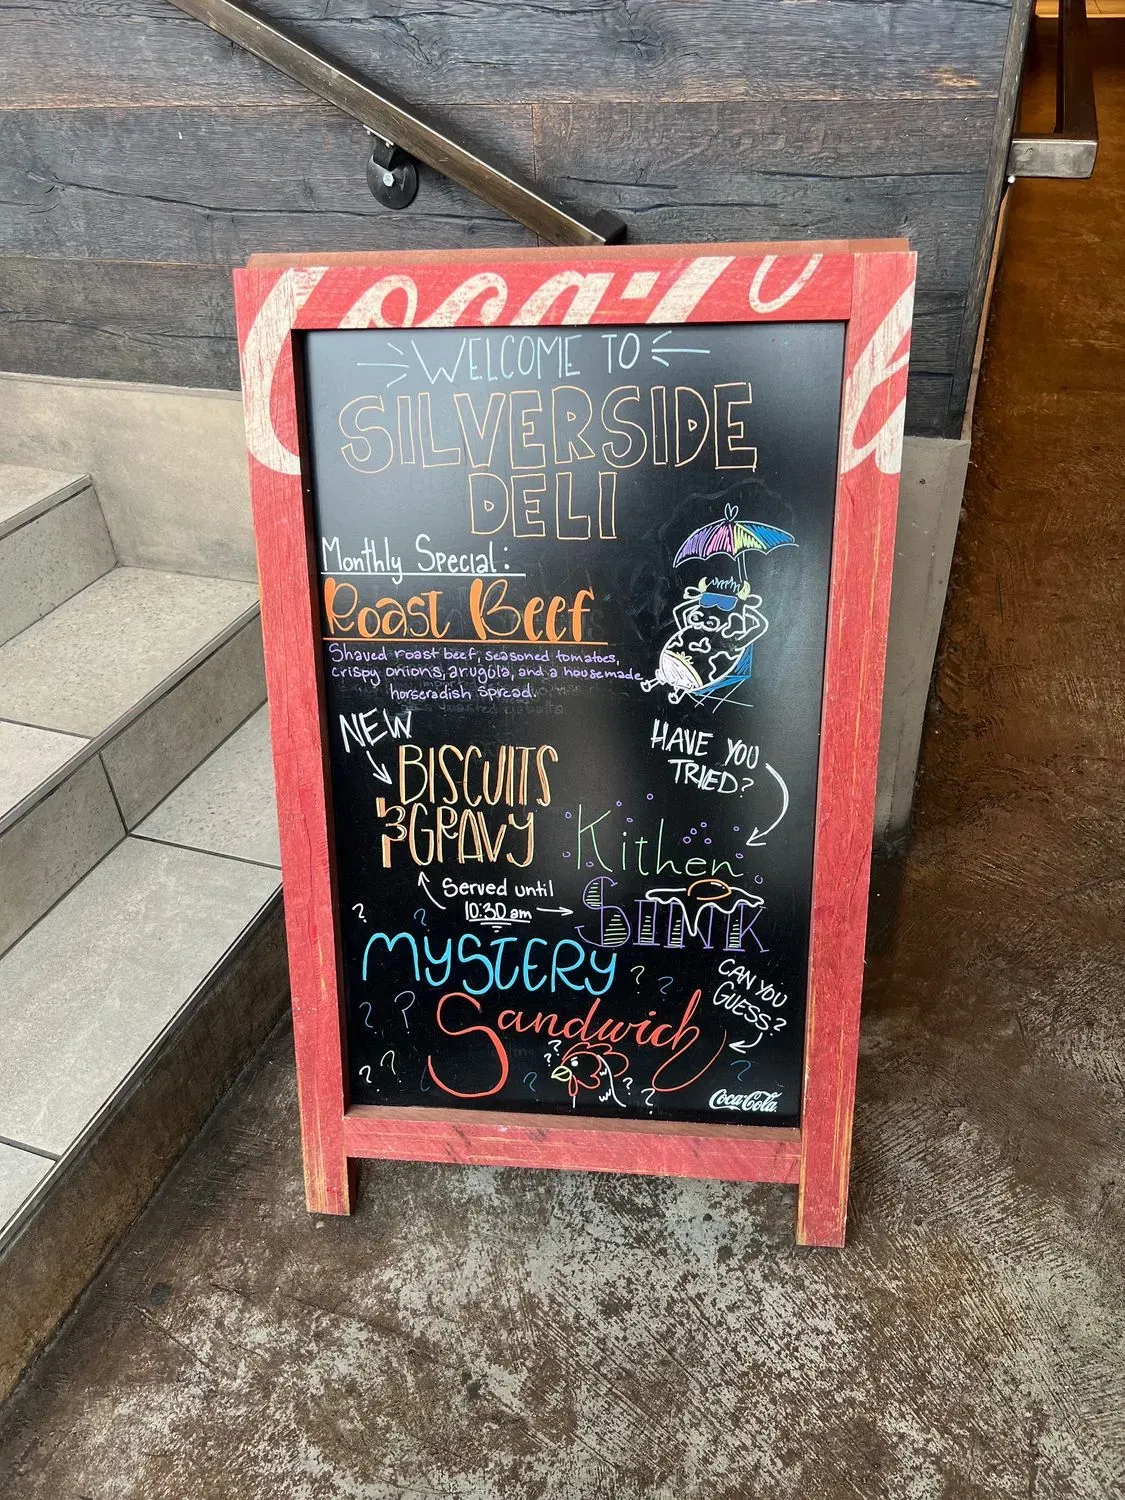 Coca-Co
WELCOME TO
SILVERSIDE
DELI
Monthly Special:
Roast Beef
Shaved roast beef, seasoned tomatoes,
crispy onions, arugola, and a housemade
horseradish spread.
NEW
BISCUITS
& GRAVY
Served until
10:30 am
HAVE YOU
TRIED?
Kithen
SINK
MYSTERY
Sandwich
CAN YOU
GUESS?
Coca-Cola